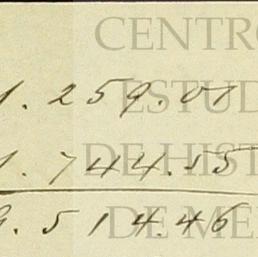 CENTRO
1.259.01
ESTUD
1.744.55
DE HIST
9.514.46
DE ME